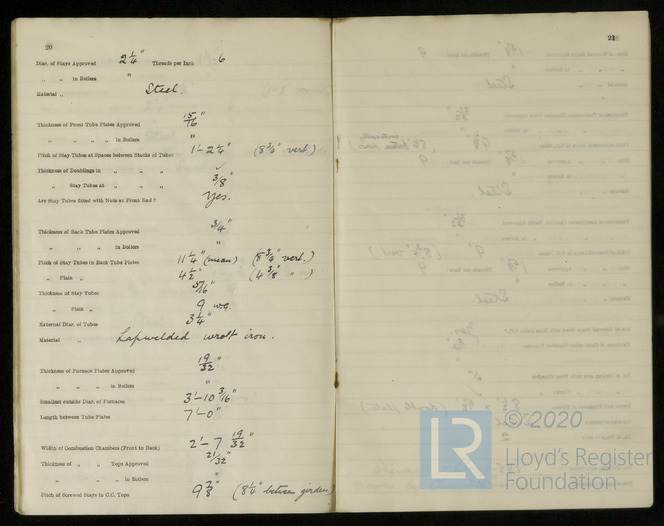 20
Diar. of Stays Approved 2 1/4" Threads per Inch 6
„ „ in Boilers "
Material „ Steel
Thickness of Front Tube Plates Approved 15/16"
„ „ „ „ in Boilers "
Pitch of Stay Tubes at Spaces between Stacks of Tubes 1'-2 1/4" (8 3/4" vert.)
Thickness of Doublings in „ „ „ ✓
„ Stay Tubes at „ „ „ 3/8"
Are Stay Tubes fitted with Nuts at Front End? Yes.
Thickness of Back Tube Plates Approved 3/4"
„ „ „ in Boilers "
Pitch of Stay Tubes in Back Tube Plates 11 1/4" (mean) (8 3/4" vert.)
„ Plain „ 4 1/2" (4 3/8" " )
Thickness of Stay Tubes 5/16"
„ Plain „ 9 w.g.
External Diar. of Tubes 3 1/4"
Material „ Lapwelded wrolt iron.
Thickness of Furnace Plates Approved 19/32"
„ „ „ in Boilers "
Smallest outside Diar. of Furnaces 3'-10 3/16"
Length between Tube Plates 7'-0"
Width of Combustion Chambers (Front to Back) 2'-7 19/32"
Thickness of „ „ Tops Approved 21/32"
„ „ „ „ in Boilers "
Pitch of Screwed Stays in C.C. Tops 9 7/8" (8 1/4" between girders
21
LR
© 2020
Lloyd's Register
Foundation